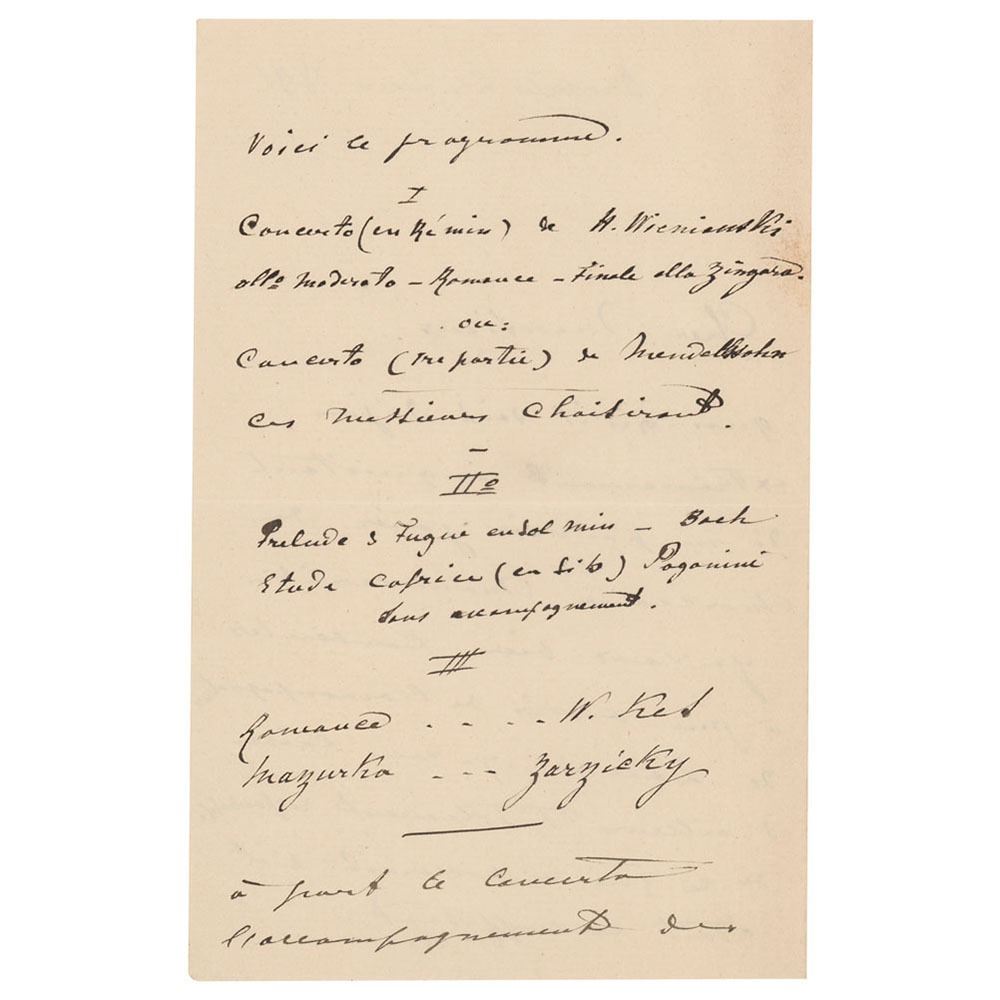 Voici le programme.
I
Concerto (en Ré min) de H. Wieniawski
allo moderato – Romance – Finale alla Zingara.
ou:
Concerto (1re partie) de Mendelssohn
ces messieurs choisiront.
IIo
Prelude & Fugue en sol min – Bach
Etude Caprice (en si b) Paganini
sans accompagnement.
III
Romance . . . . W. Kes
Mazurka . . . Zarzicky
à part le Concerto
l'accompagnement des